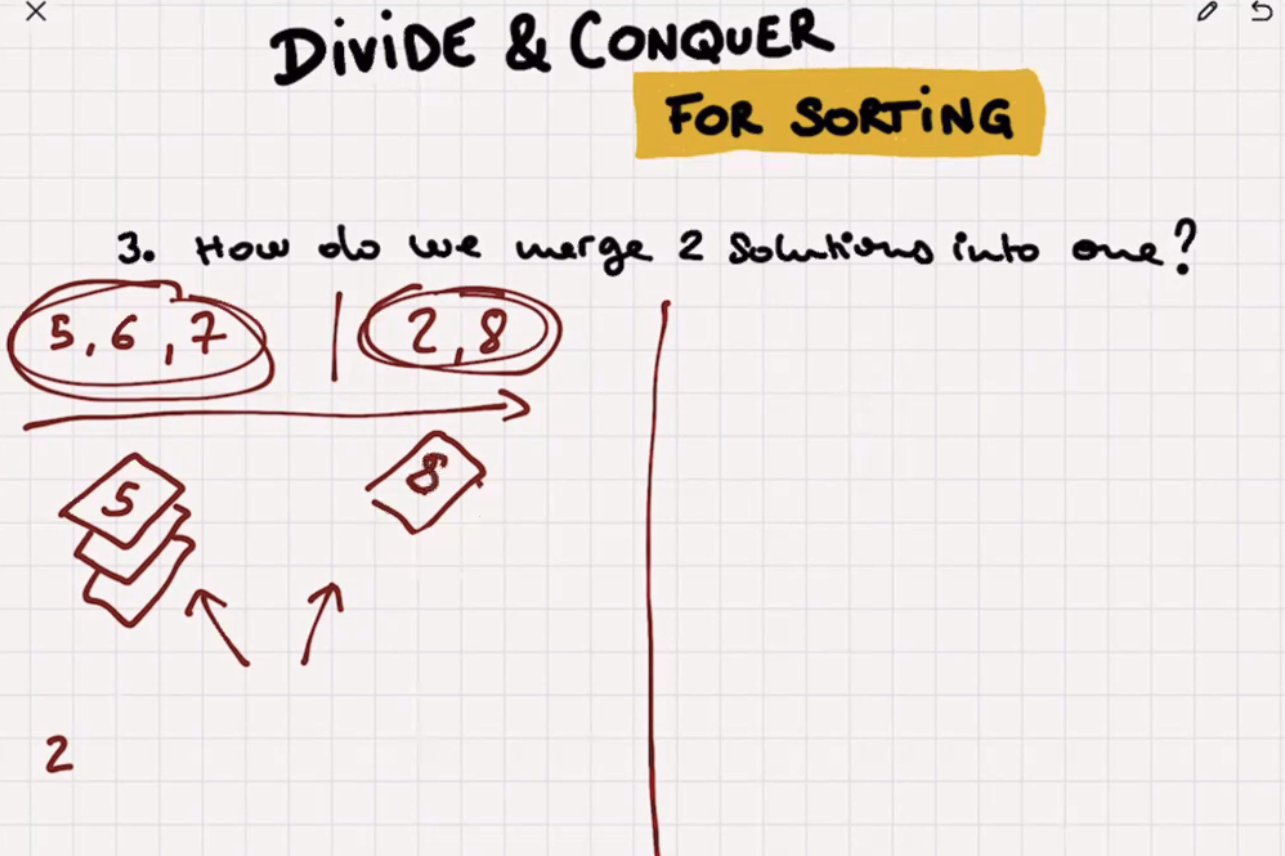 DiViDE & CONQUER
FOR SORTiNG
3. How do we merge 2 solutions into one?
5, 6, 7 | 2, 8
5 8
2